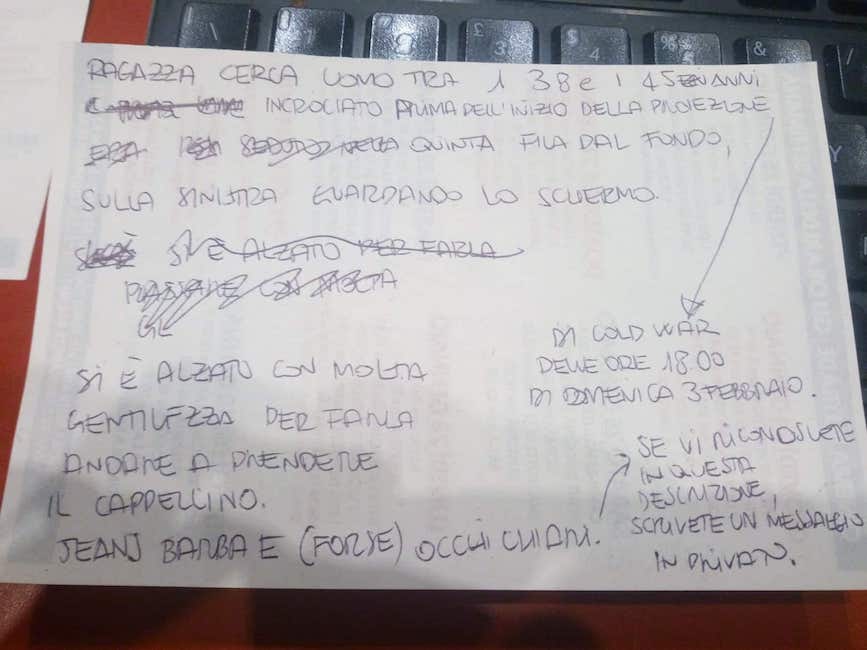 RAGAZZA CERCA UOMO TRA I 38 e I 45 ANNI
INCROCIATO PRIMA DELL'INIZIO DELLA PROIEZIONE
ERA SEDUTO NELLA QUINTA FILA DAL FONDO,
SULLA SINISTRA GUARDANDO LO SCHERMO.
SI È ALZATO PER FARLA
GL
SI È ALZATO CON MOLTA
GENTILEZZA PER FARLA
ANDARE A PRENDERE
IL CAPPELLINO.
JEANS BARBA E (FORSE) OCCHI CHIARI.
DI COLD WAR
DELLE ORE 18.00
DI DOMENICA 3 FEBBRAIO.
SE VI RICONOSCETE
IN QUESTA
DESCRIZIONE,
SCRIVETE UN MESSAGGIO
IN PRIVATO.